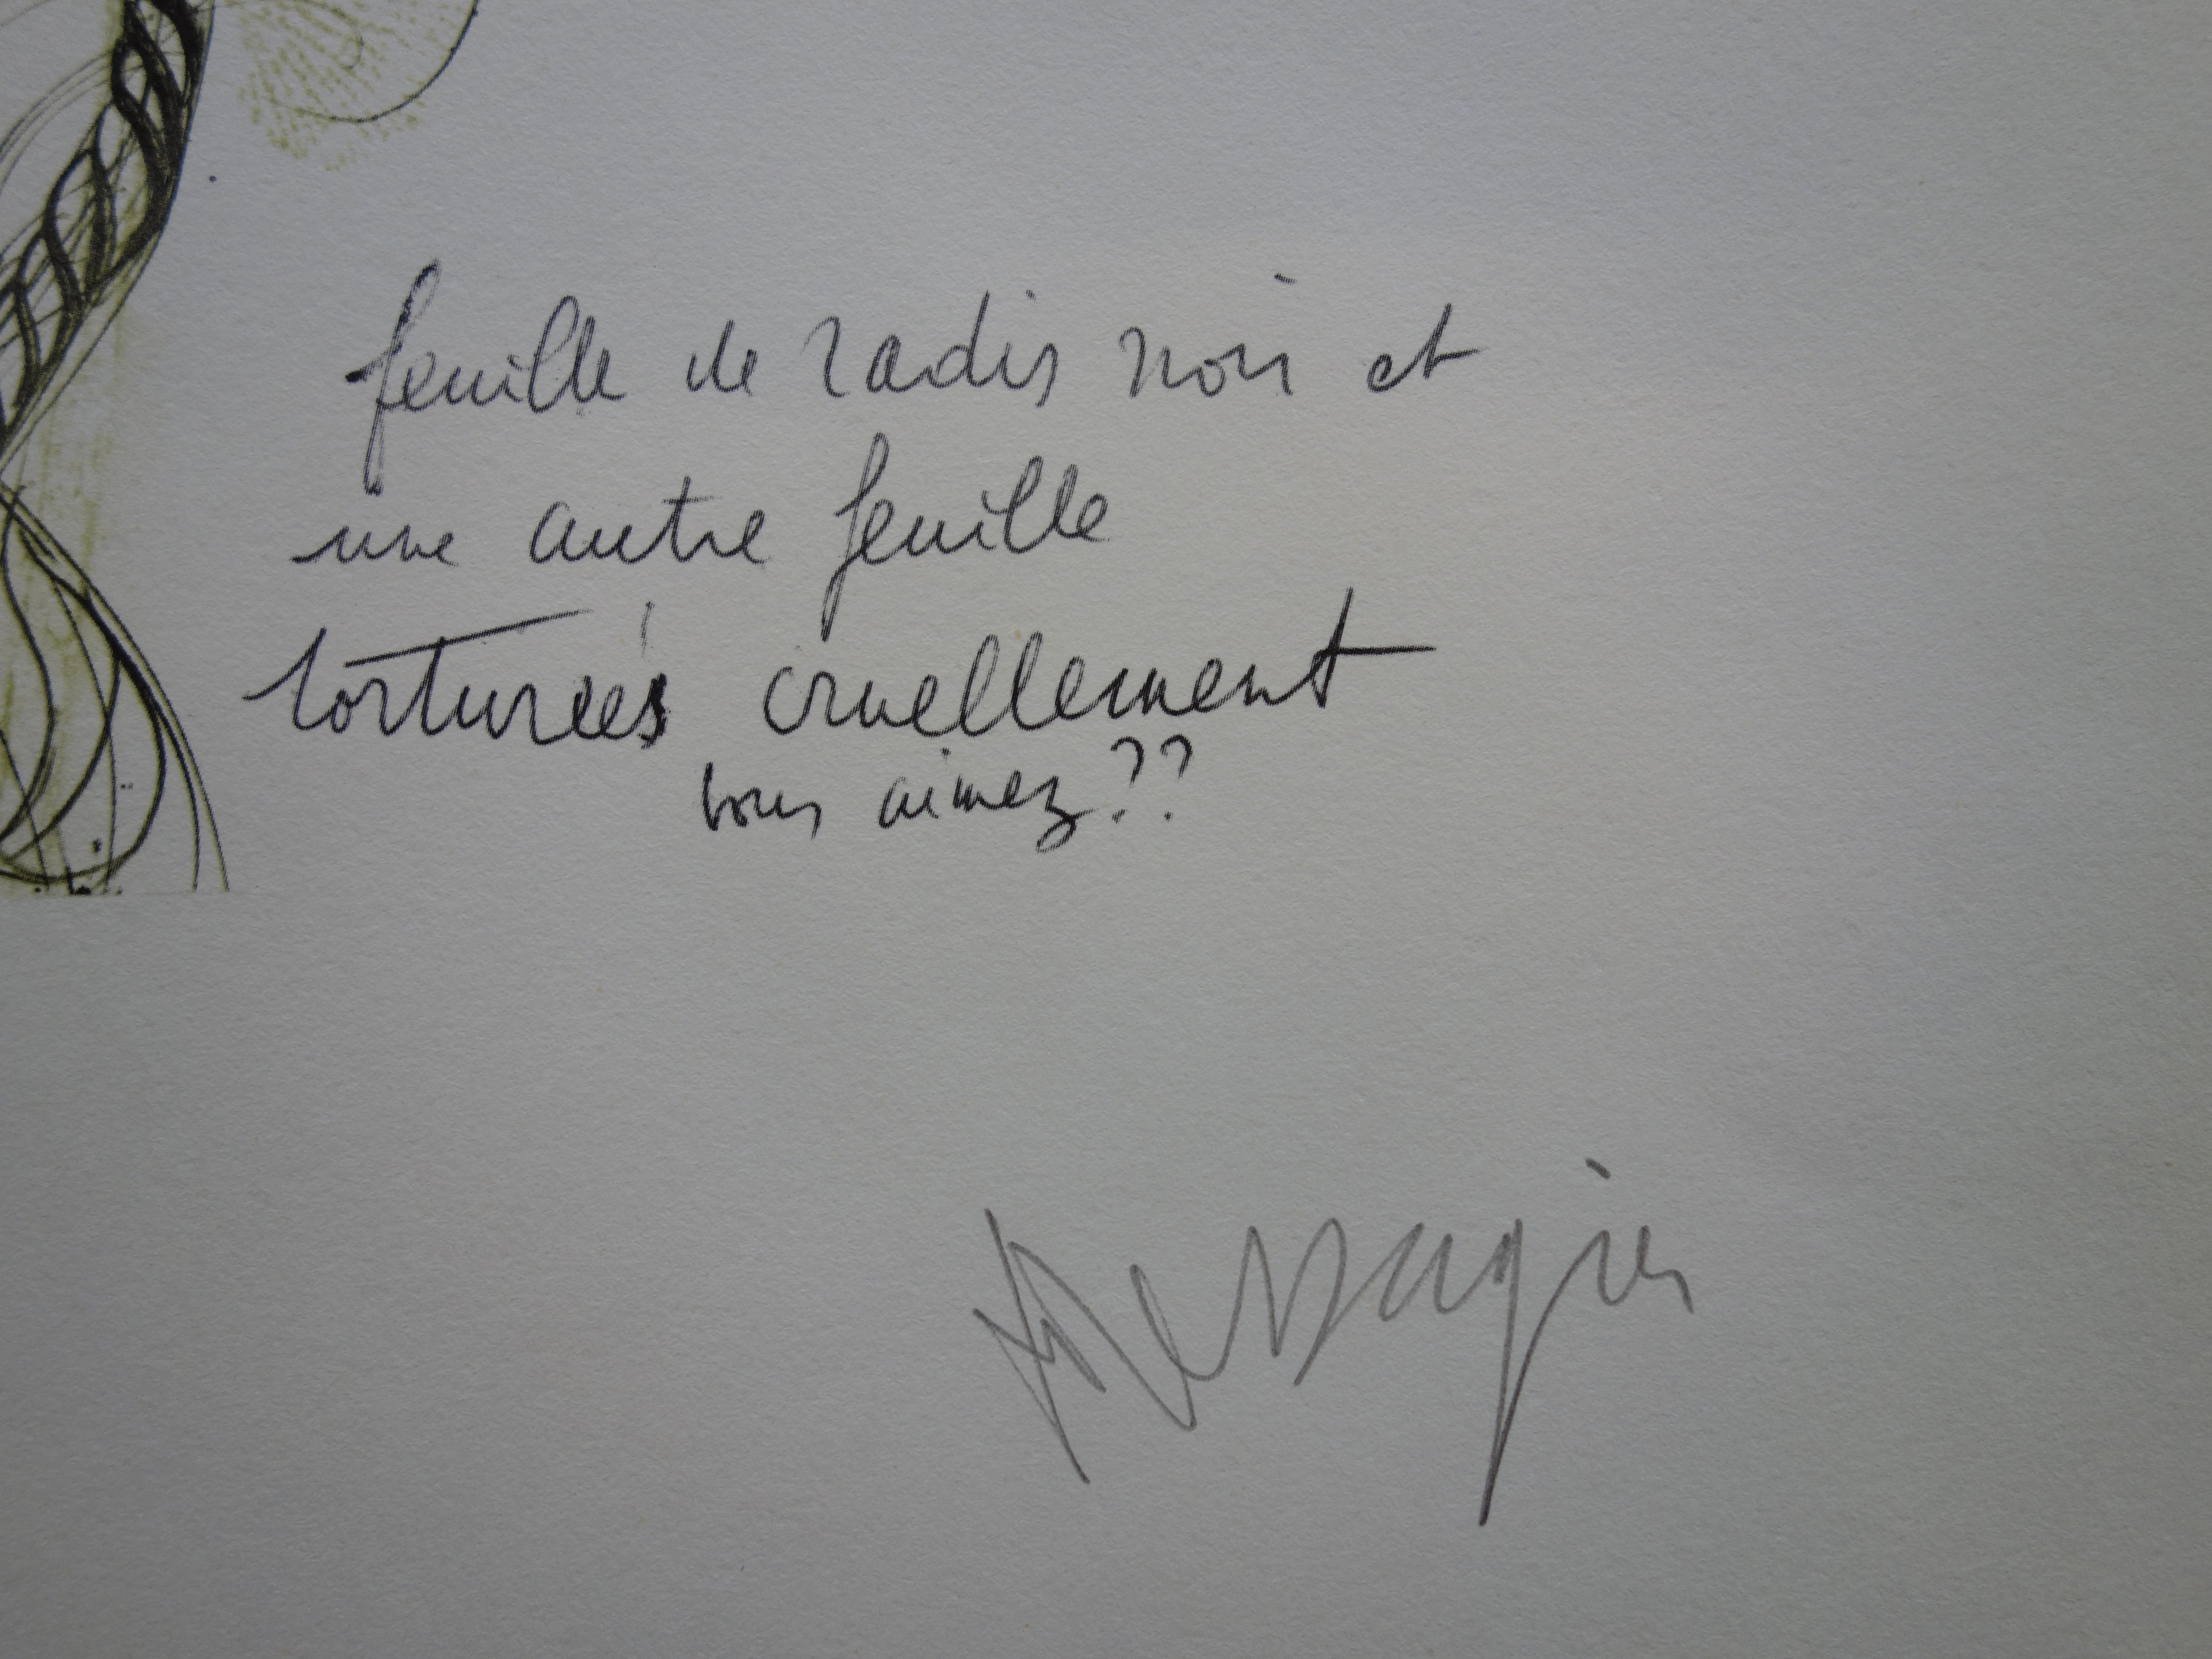 feuille de radis noir et
une autre feuille
torturées cruellement
vous aimez??
Messagier